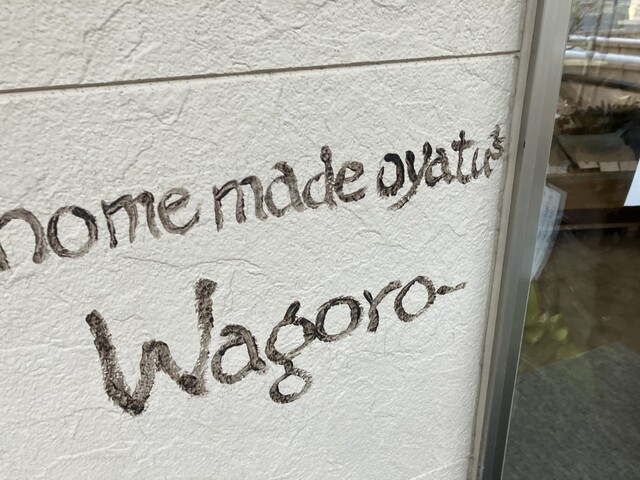 home made oyatu's
Wagoro-